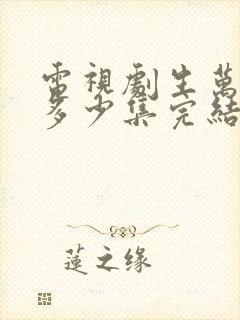 電視劇生萬
多少集完結
蓮之缘